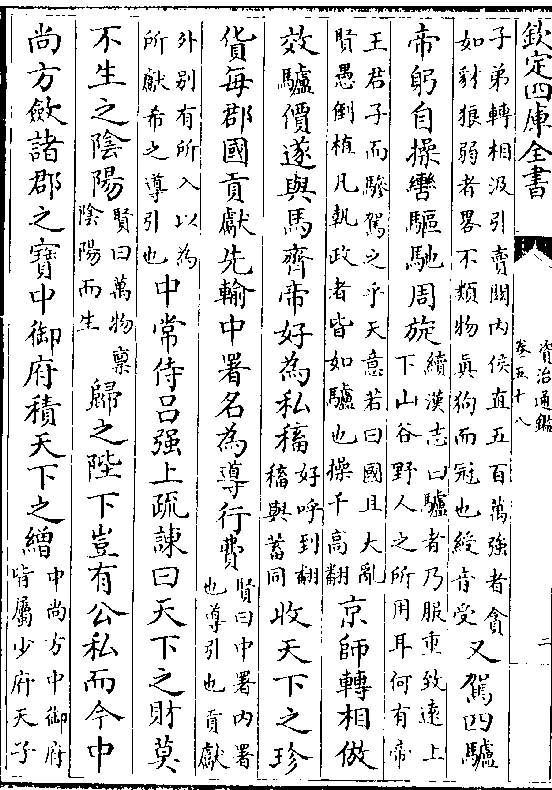 欽定四庫全書
資治通鑑
卷五十八
二
子弟轉相汲引賣關内侯直五百萬強者貪
如豺狼弱者畧不類物真狗而冠也綬音受
又駕四驢
帝躬自操轡驅馳周旋
續漢志曰驢者乃服重致遠上
下山谷野人之所用耳何有帝
王君子而驂駕之乎天意若曰國且大亂
賢愚倒植凡執政者皆如驢也操千高翻
京師轉相倣
效驢價遂與馬齊帝好為私稸
好呼到翻
稸與蓄同
收天下之珍
貨每郡國貢獻先輸中署名為導行費
賢曰中署内署
也導引也貢獻
外別有所入以為
所獻希之導引也
中常侍吕强上疏諫曰天下之財莫
不生之陰陽
賢曰萬物禀
陰陽而生
歸之陛下豈有公私而今中
尚方斂諸郡之寶中御府積天下之繒
中尚方中御府
皆屬少府天子